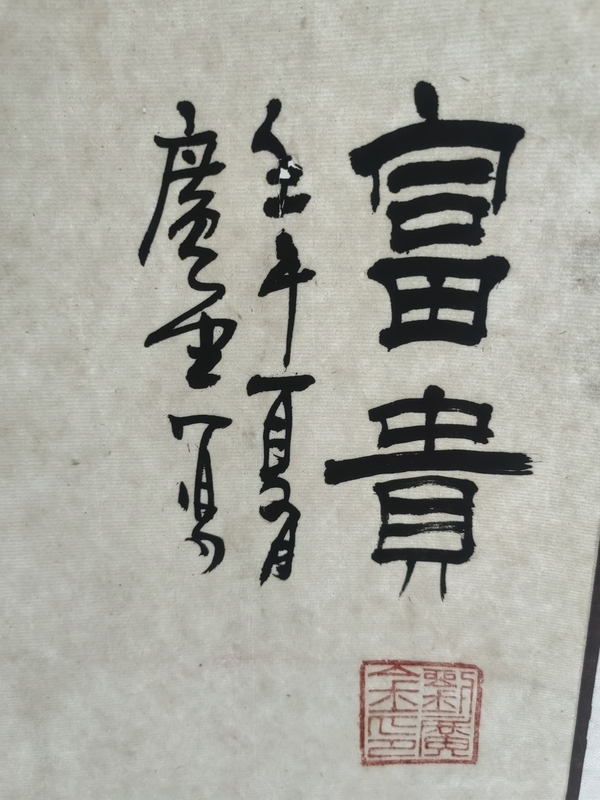 富貴
壬午夏月
廣寫
劉廣印